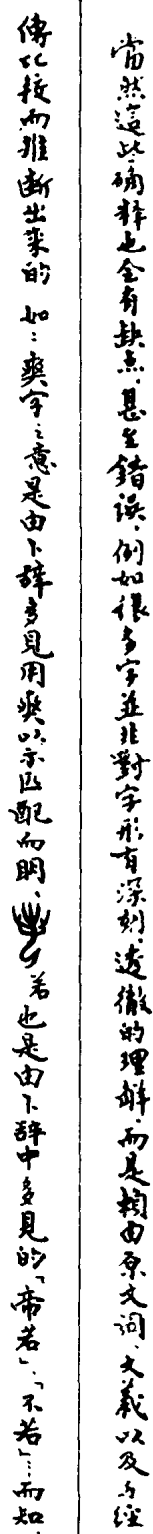 當然這些确釋也会有缺点，甚至錯誤，例如很多字並非對字形有深刻、透徹的理解，而是轉由原文詞、文義以及与經
傳比按而推断出来的 如：奭字之意是由卜辞多見用奭以示匹配而明、若也是由卜辞中多見的「帝若」、「不若」…而知，